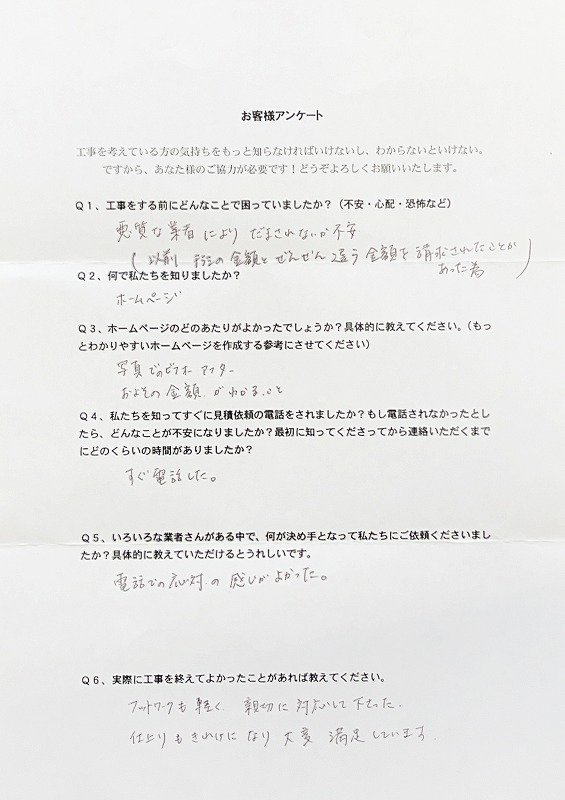 お客様アンケート
工事を考えている方の気持ちをもっと知らなければいけないし、わからないといけない。
ですから、あなた様のご協力が必要です！どうぞよろしくお願いいたします。
Q１、工事をする前にどんなことで困っていましたか？（不安・心配・恐怖など）
悪質な業者によりだまされないか不安
（以前 の金額とぜんぜん違う金額を請求されたことが
あった為）
Q２、何で私たちを知りましたか？
ホームページ
Q３、ホームページのどのあたりがよかったでしょうか？具体的に教えてください。（もっ
とわかりやすいホームページを作成する参考にさせてください）
写真でのビフォーアフター
おおよその金額がわかること
Q４、私たちを知ってすぐに見積依頼の電話をされましたか？もし電話されなかったとし
たら、どんなことが不安になりましたか？最初に知ってくださってから連絡いただくまで
にどのくらいの時間がありましたか？
すぐ電話した。
Q５、いろいろな業者さんがある中で、何が決め手となって私たちにご依頼くださいまし
たか？具体的に教えていただけるとうれしいです。
電話での応対の感じがよかった。
Q６、実際に工事を終えてよかったことがあれば教えてください。
フットワークも軽く、親切に対応して下さった。
仕上りもきれいになり大変満足しています。